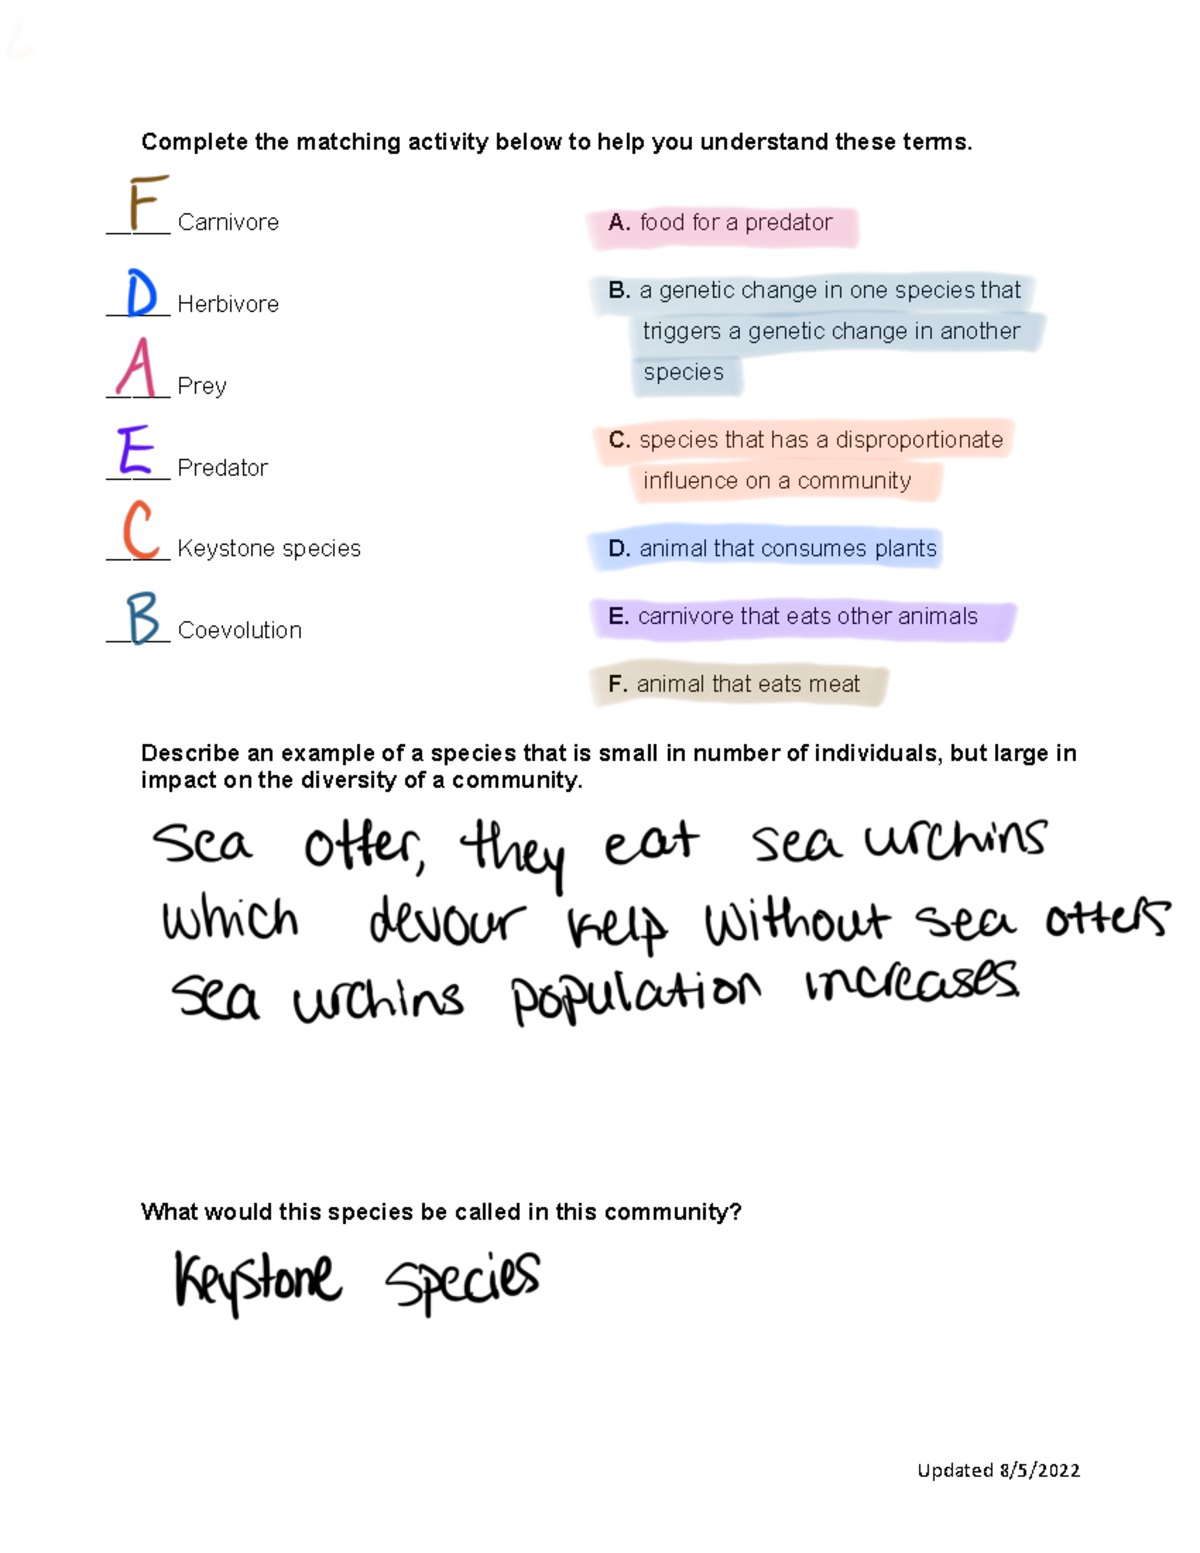 Complete the matching activity below to help you understand these terms.
F Carnivore
A. food for a predator
D Herbivore
B. a genetic change in one species that
triggers a genetic change in another
species
A Prey
E Predator
C. species that has a disproportionate
influence on a community
C Keystone species
D. animal that consumes plants
B Coevolution
E. carnivore that eats other animals
F. animal that eats meat
Describe an example of a species that is small in number of individuals, but large in
impact on the diversity of a community.
sea otter, they eat sea urchins
which devour kelp without sea otters
sea urchins population increases.
What would this species be called in this community?
Keystone species
Updated 8/5/2022